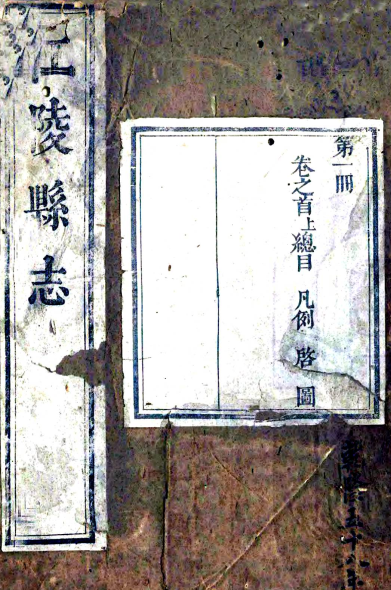 第一冊
卷之首上總目 凡例 啓 圖
江陵縣志